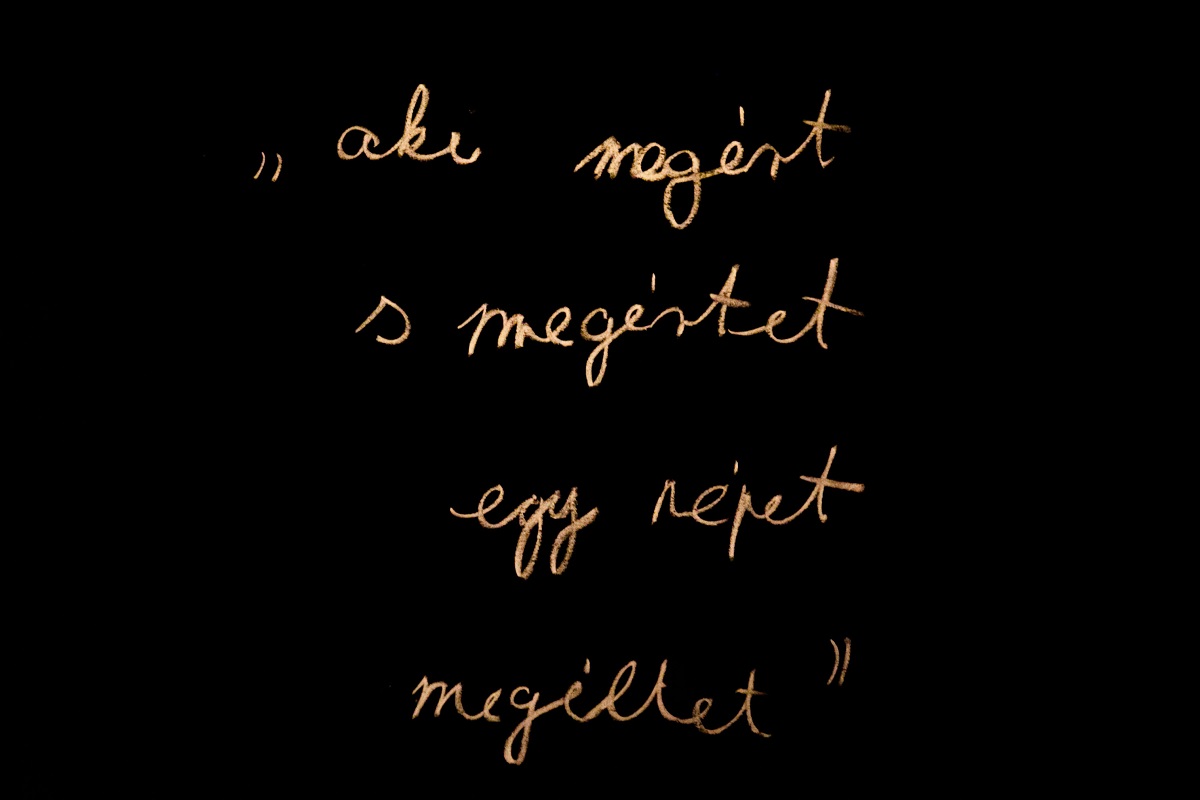 „ aki megért
s megértet
egy népet
megéltet ”